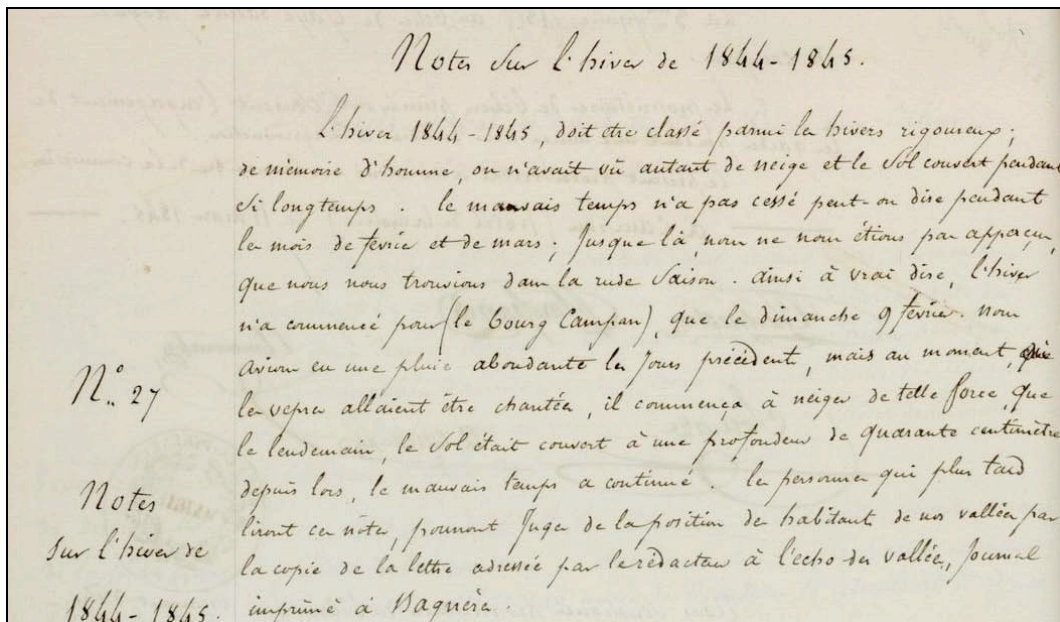 Notes sur l'hiver de 1844-1845.
L'hiver 1844-1845, doit être classé parmi les hivers rigoureux;
de mémoire d'homme, on n'avait vû autant de neige et le sol couvert pendant
si longtemps. le mauvais temps n'a pas cessé peut-on dire pendant
les mois de février et de mars; jusque là, nous ne nous étions pas apperçus,
que nous nous trouvions dans la rude saison. ainsi à vrai dire, l'hiver
n'a commencé pour (le bourg Campan), que le dimanche 9 février. nous
avions eu une pluie abondante les jours précédents, mais au moment, que
les vepres allaient être chantées, il commença à neiger de telle force, que
le lendemain, le sol était couvert à une profondeur de quarante centimètres
depuis lors, le mauvais temps a continué. les personnes qui plus tard
liront ces notes, pourront juger de la position des habitants de nos vallées par
la copie de la lettre adressée par le rédacteur à l'echo des vallées, journal
imprimé à Bagnères.
N° 27
Notes
sur l'hiver de
1844-1845.